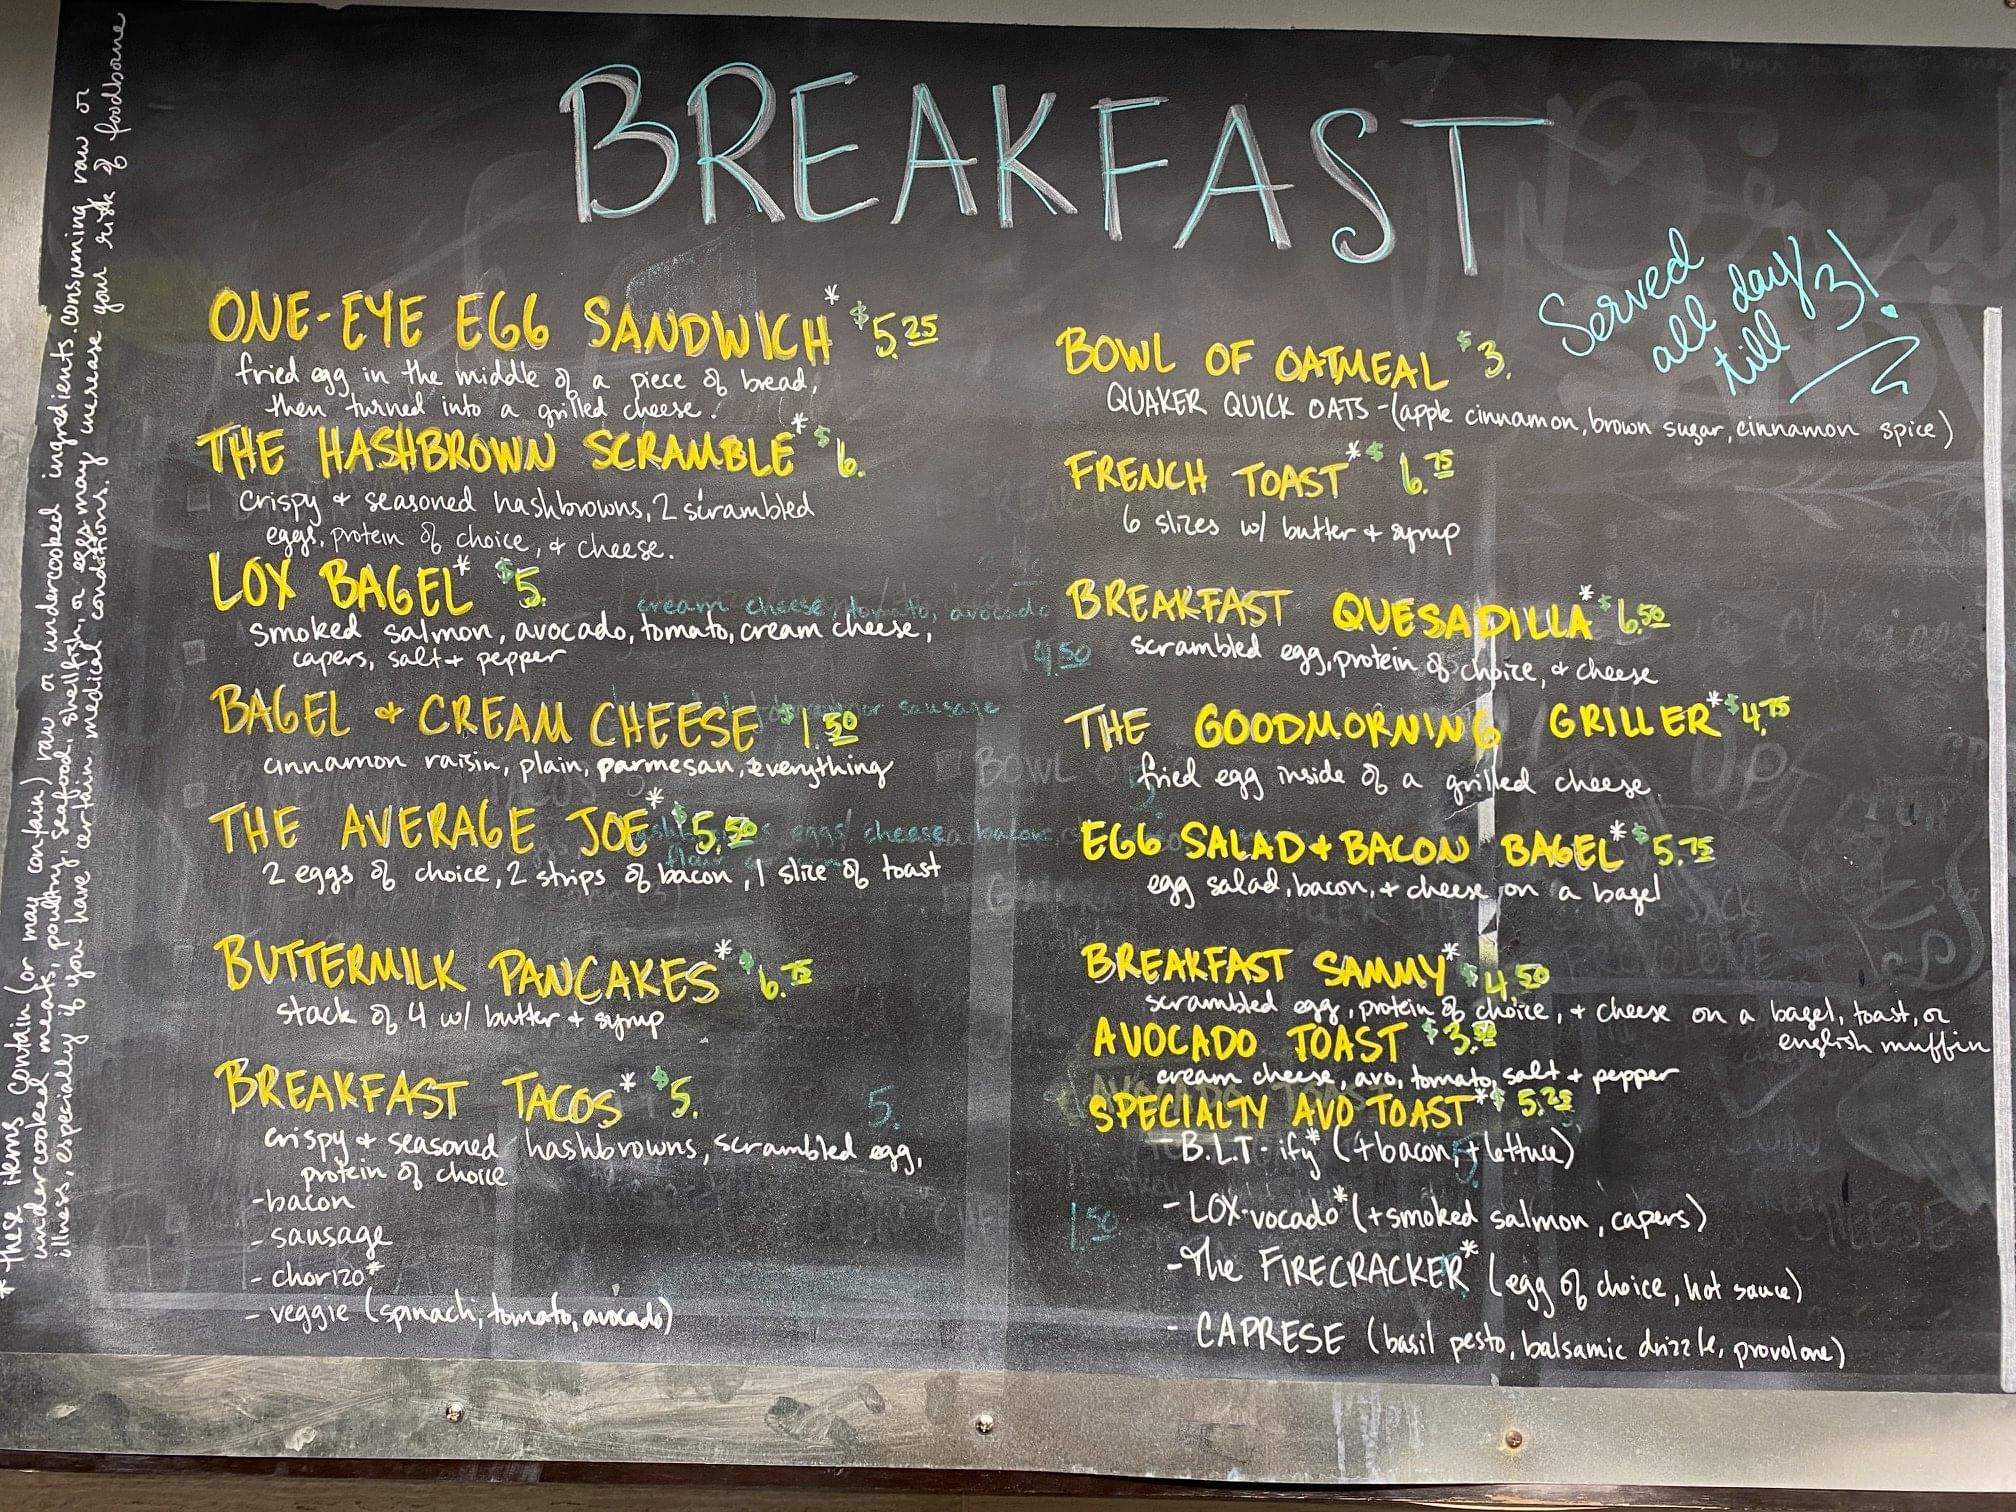 BREAKFAST
Served
all day
till 3!
ONE-EYE EGG SANDWICH* $5.25
fried egg in the middle of a piece of bread,
then turned into a grilled cheese!
THE HASHBROWN SCRAMBLE* $6.
crispy + seasoned hashbrowns, 2 scrambled
eggs, protein of choice, & cheese.
LOX BAGEL* $5.
smoked salmon, avocado, tomato, cream cheese,
capers, salt + pepper
BAGEL + CREAM CHEESE $1.50
cinnamon raisin, plain, parmesan, everything
THE AVERAGE JOE* $5.50
2 eggs of choice, 2 strips of bacon, 1 slice of toast
BUTTERMILK PANCAKES* $6.75
stack of 4 w/ butter + syrup
BREAKFAST TACOS* $5.
crispy + seasoned hashbrowns, scrambled egg,
protein of choice
-bacon
- sausage
- chorizo*
- veggie (spinach, tomato, avocado)
BOWL OF OATMEAL $3.
QUAKER QUICK OATS - (apple cinnamon, brown sugar, cinnamon spice)
FRENCH TOAST* $6.75
6 slices w/ butter + syrup
BREAKFAST QUESADILLA* $6.50
scrambled egg, protein of choice, & cheese
THE GOODMORNING GRILLER* $4.75
fried egg inside of a grilled cheese
EGG SALAD + BACON BAGEL* $5.75
egg salad, bacon, + cheese on a bagel
BREAKFAST SAMMY* $4.50
scrambled egg, protein of choice, + cheese on a bagel, toast, or
english muffin
AVOCADO TOAST $3.50
cream cheese, avo, tomato, salt + pepper
SPECIALTY AVO TOAST* $5.25
- B.L.T-ify* (+bacon, +lettuce)
- LOX-vocado* (+smoked salmon, capers)
- The FIRECRACKER* (egg of choice, hot sauce)
- CAPRESE (basil pesto, balsamic drizzle, provolone)
* these items contain (or may contain) raw or undercooked ingredients. consuming raw or
undercooked meats, poultry, seafood, shellfish, or eggs may increase your risk of foodborne
illness, especially if you have certain medical conditions.